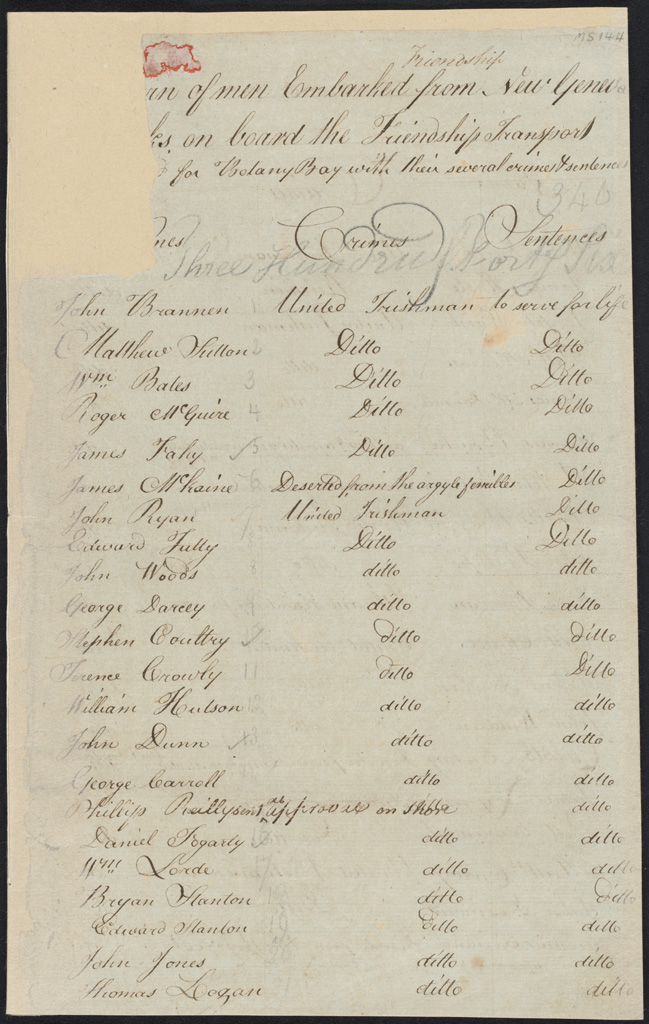 MS 144
Friendship
rn of men Embarked from New Genev
ks on board the Friendship Transport
for Botany Bay with their several crimes & sentences
346
mes Crimes Sentences
Three Hundred Forty Six
John Brannen United Irishman to serve for life
Matthew Sutton 2 Ditto Ditto
Wm Bales 3 Ditto Ditto
Roger McGuire 4 Ditto Ditto
James Fahy 5 Ditto Ditto
James McKaine 6 Deserted from the argyle fencibles Ditto
John Ryan United Irishman Ditto
Edward Tully Ditto Ditto
John Woods ditto ditto
George Darcey ditto ditto
Stephen Coultry ditto ditto
Terence Crowly 11 ditto Ditto
William Hutson 12 ditto ditto
John Dunn 13 ditto ditto
George Carroll ditto ditto
Phillip Reilly sent as approver on shore ditto
Daniel Fogarty 16 ditto ditto
Wm Lorde 17 ditto ditto
Bryan Stanton ditto ditto
Edward Stanton 19 ditto ditto
John Jones ditto ditto
Thomas Logan ditto ditto